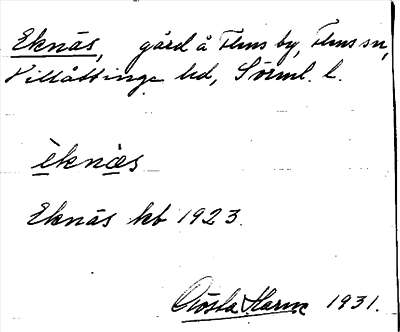 Eknäs, gård å Flens by, Flens sn,
Villåttinge hd, Sörml. l.
èknæ̀s
Eknäs kb 1923.
Gösta 1931.